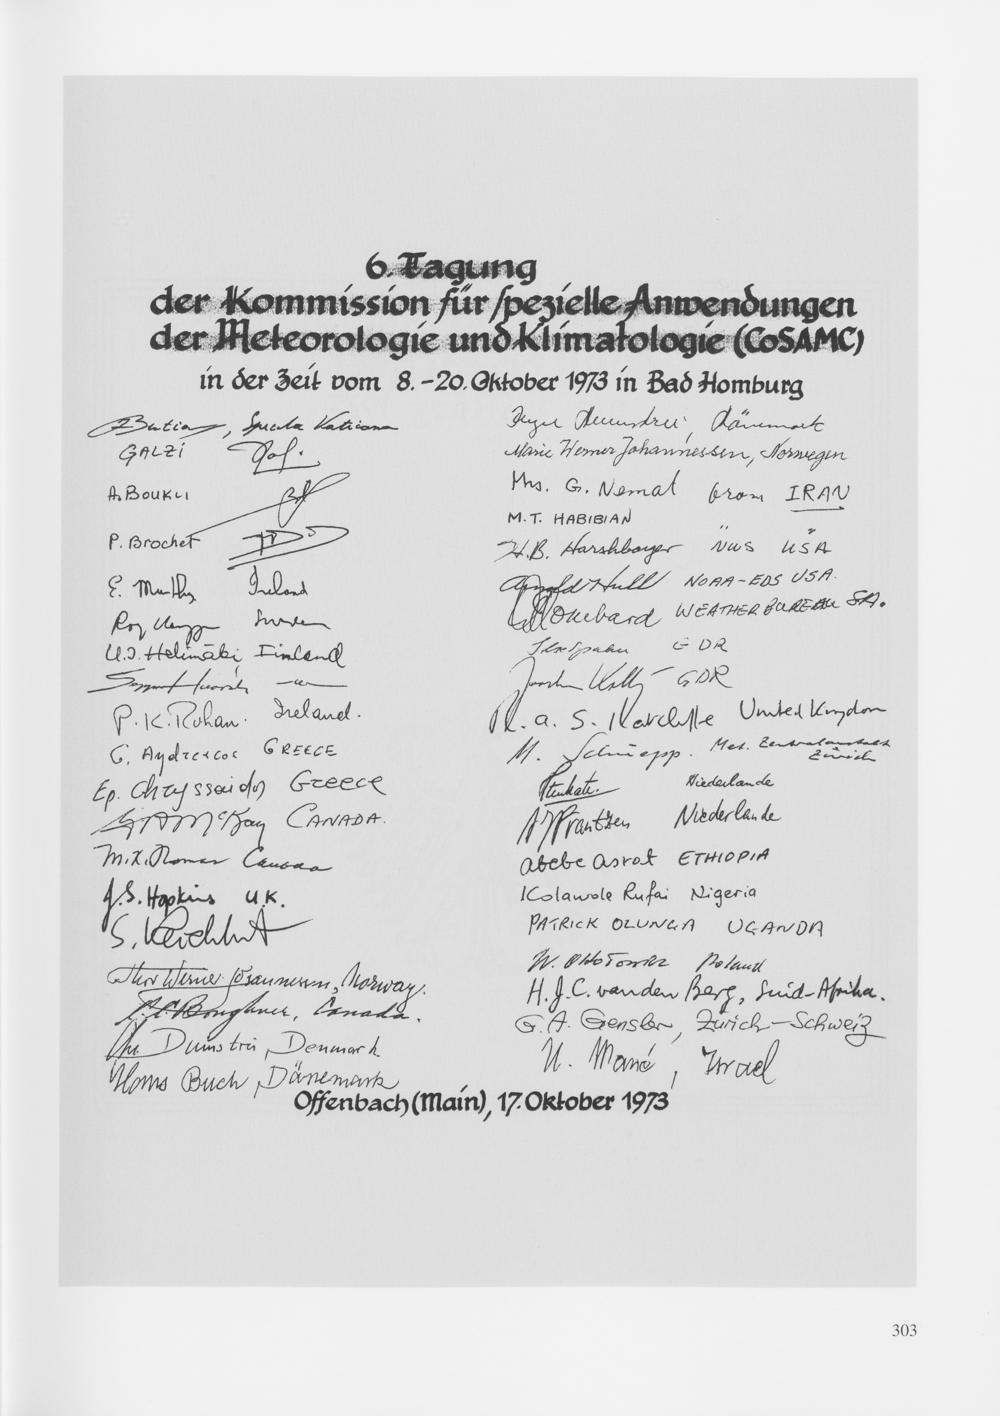 6. Tagung
der Kommission für spezielle Anwendungen
der Meteorologie und Klimatologie (CoSAMC)
in der Zeit vom 8.-20. Oktober 1973 in Bad Homburg
, Specula Vaticana
GALZI
A. BOUKLI
P. Brochet
E. Murphy Ireland
Roy Sweden
U.J. Helimäki Finland
P.K. Rohan. Ireland.
G. GREECE
Ep. Chryssaidos Greece
McKay CANADA.
M.K. Thomas Canada
J.S. Hopkins U.K.
S.
Werner Johannessen, Norway.
Boughner, Canada.
Dumstrei, Denmark
Hans Buch, Dänemark
Dumstrei, Dänemark
Marie Werner Johannessen, Norwegen
Mrs. G. Nemat from IRAN
M.T. HABIBIAN "
H.B. Harshbarger NWS USA
Arnold Hull NOAA-EDS USA.
WEATHER BUREAU SA.
GDR
GDR
R. a. S. Ratcliffe United Kingdom
M. Schüepp. Met. Zentralanstalt
Zürich
Niederlande
Frantzen Niederlande
abebe asrat ETHIOPIA
Kolawole Rufai Nigeria
PATRICK OLUNGA UGANDA
W. Poland
H.J.C. van den Berg, Süd-Afrika.
G.A. Gensler, Zürich-Schweiz
Mané, Israel
Offenbach (Main), 17. Oktober 1973
303